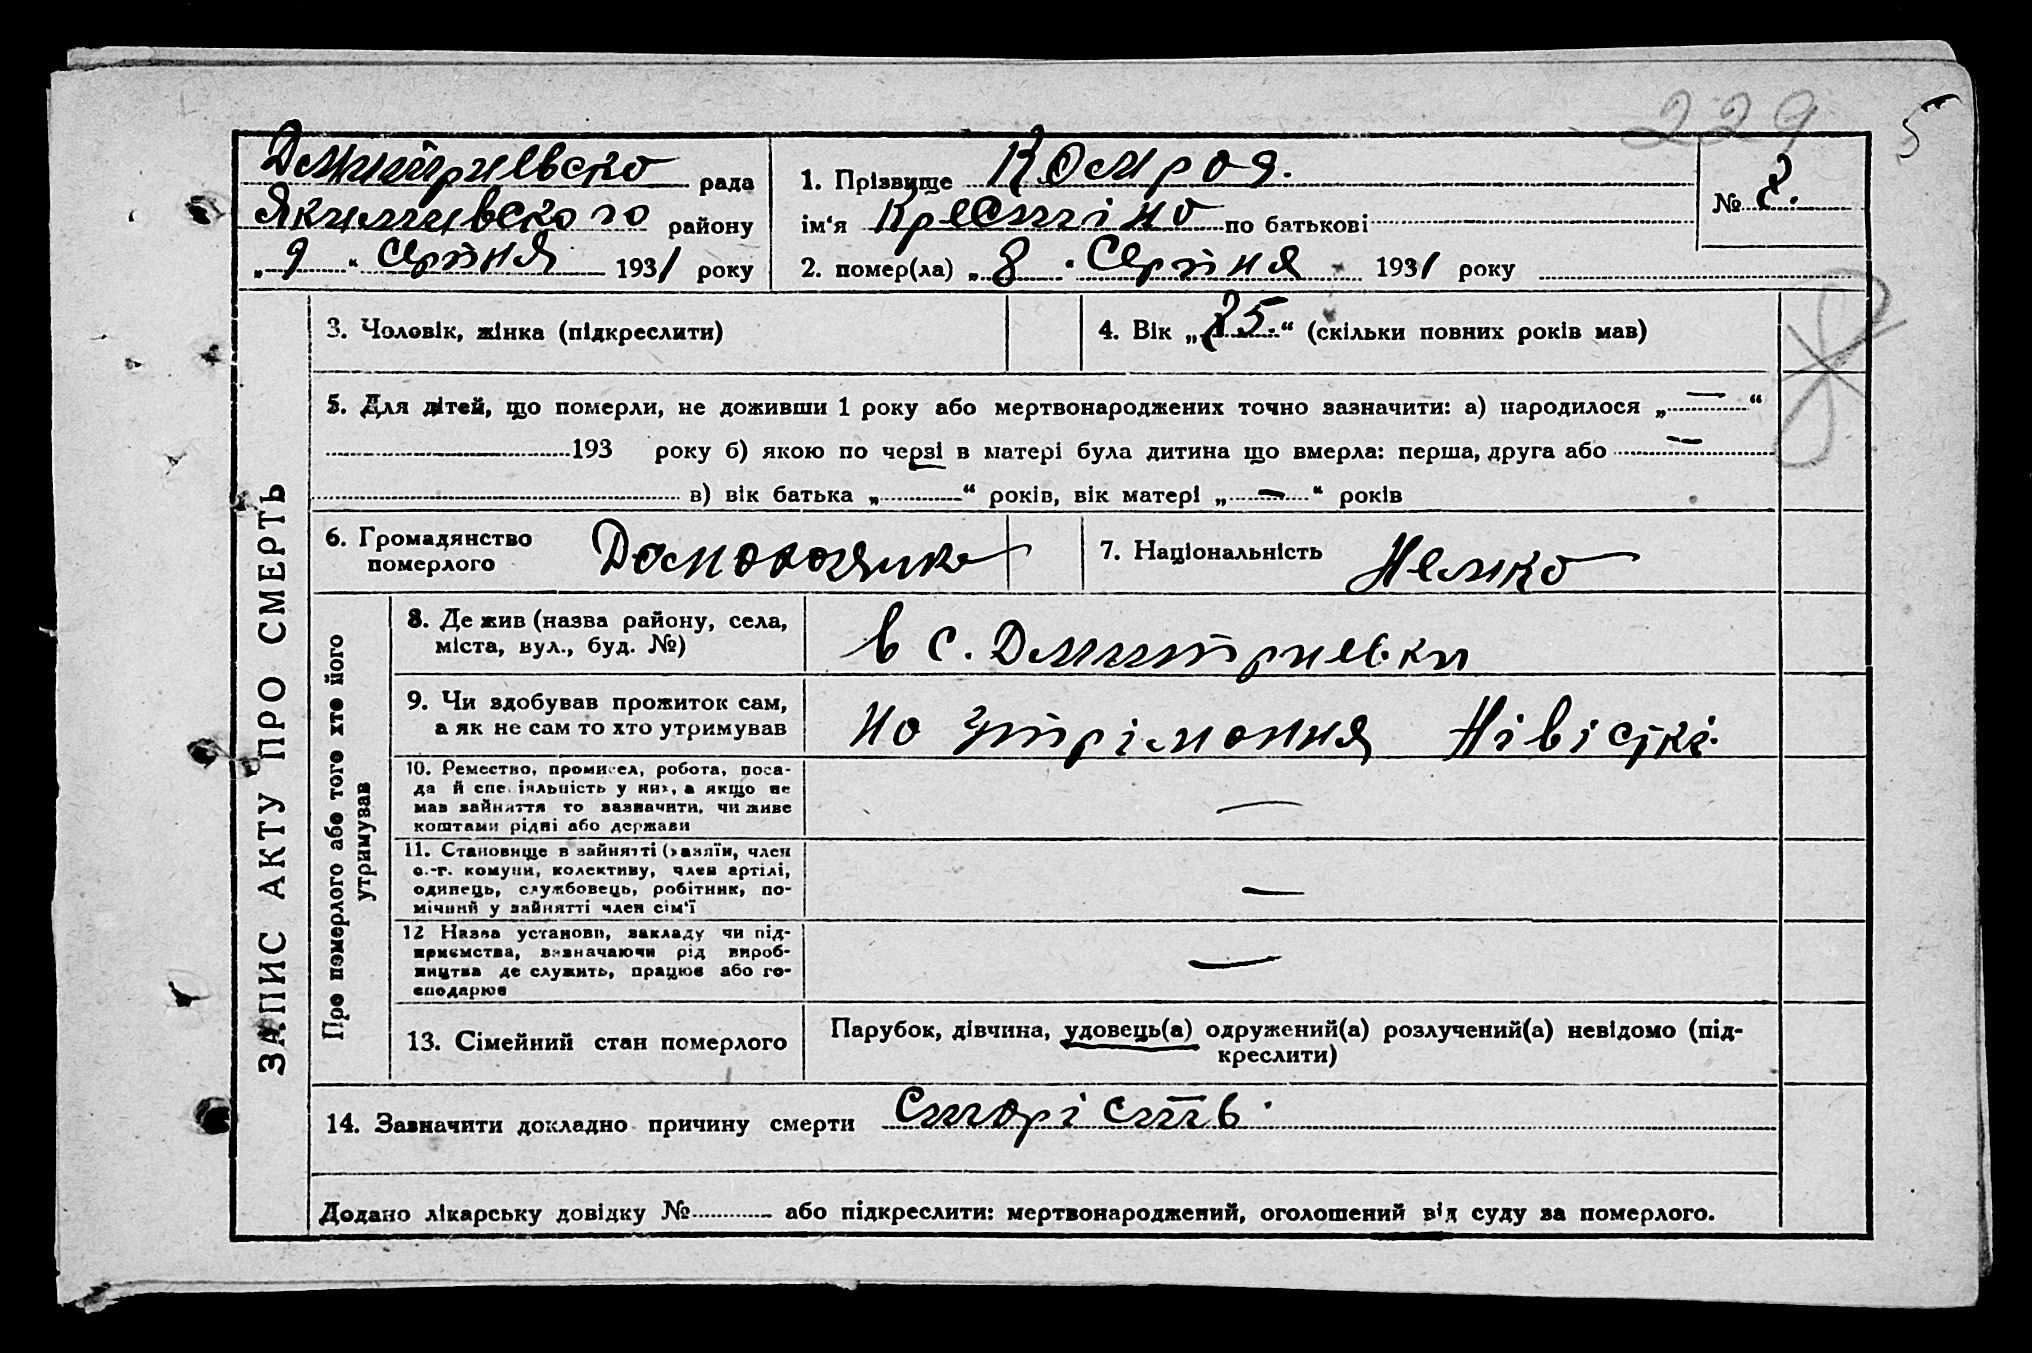 229
5
Дмитриевска рада
Якимивского району
„9“ Серпня 1931 року
1. Прізвище
ім'я Крестіна по батькові
2. помер(ла) „8“ Серпня 1931 року
№ 8.
ЗАПИС АКТУ ПРО СМЕРТЬ
3. Чоловік, жінка (підкреслити)
4. Вік „85.“ (скільки повних років мав)
5. Для дітей, що померли, не доживши 1 року або мертвонароджених точно зазначити: а) народилося „—“
193 року б) якою по черзі в матері була дитина що вмерла: перша, друга або —
в) вік батька „ “ років, вік матері „—“ років
6. Громадянство
померлого
7. Національність Немка
Про померлого або того хто його
утримував
8. Де жив (назва району, села,
міста, вул., буд. №)
в с. Дмитриевки
9. Чи здобував прожиток сам,
а як не сам то хто утримував
на утрімання Нівісткі.
10. Ремество, промисел, робота, поса-
да й спеціяльність у них, а якщо не
мав зайняття то зазначити, чи живе
коштами рідні або держави
—
11. Становище в зайнятті (хазяїн, член
с.-г. комуни, колективу, член артілі,
одинець, службовець, робітник, по-
мічний у зайнятті член сім'ї
—
12 Назва установи, закладу чи під-
приємства, зазначаючи рід вироб-
ництва де служить, працює або го-
сподарює
—
13. Сімейний стан померлого
Парубок, дівчина, удовець(а) одружений(а) розлучений(а) невідомо (під-
креслити)
14. Зазначити докладно причину смерти Старість.
Додано лікарську довідку № або підкреслити: мертвонароджений, оголошений від суду за померлого.